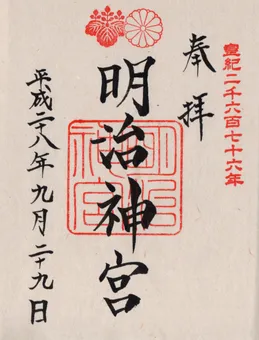 皇紀二千六百七十六年
奉拝
明治神宮
明治神宮
平成二十八年九月二十九日